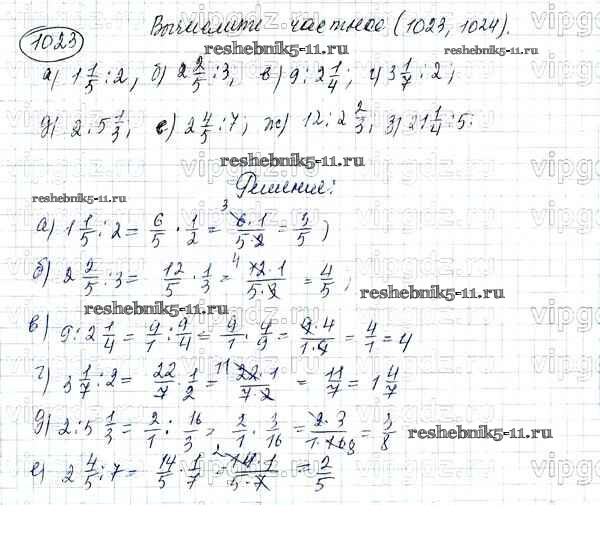 1023 Вычислите частное (1023, 1024).
reshebnik5-11.ru reshebnik5-11.ru
а) 1 1/5 : 2, б) 2 2/5 : 3, в) 9 : 2 1/4; г) 3 1/7 : 2;
д) 2 : 5 1/3; е) 2 4/5 : 7; ж) 12 : 2 2/3, з) 21 1/4 : 5.
reshebnik5-11.ru
Решение:
reshebnik5-11.ru
reshebnik5-11.ru
а) 1 1/5 : 2 = 6/5 · 1/2 = 3 6·1/5·2 = 3/5;
б) 2 2/5 : 3 = 12/5 · 1/3 = 4 12·1/5·3 = 4/5;
reshebnik5-11.ru
reshebnik5-11.ru
в) 9 : 2 1/4 = 9/1 : 9/4 = 9/1 · 4/9 = 9·4/1·9 = 4/1 = 4
г) 3 1/7 : 2 = 22/7 · 1/2 = 11 22·1/7·2 = 11/7 = 1 4/7
д) 2 : 5 1/3 = 2/1 : 16/3 = 2/1 · 3/16 = 2·3/1·16 8 = 3/8
reshebnik5-11.ru
е) 2 4/5 : 7 = 14/5 · 1/7 = 2 14·1/5·7 = 2/5
reshebnik5-11.ru
vipgdz.ru